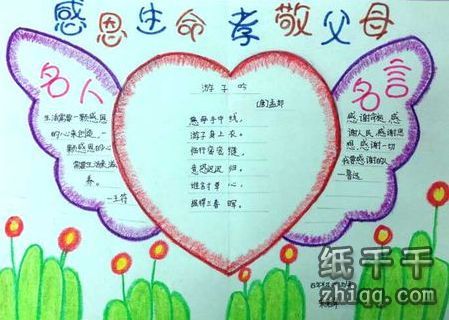 感恩生命 孝敬父母
名人
生活需要一颗感恩
的心来创造,一
颗感恩的心
需要生活来滋
养。
—王符
游子吟
(唐)孟郊
慈母手中线,
游子身上衣。
临行密密缝,
意恐迟迟归。
谁言寸草心,
报得三春晖。
名言
感谢命运,感
谢人民,感谢思
想,感谢一切
我要感谢的人
—鲁迅
纸千千
zhiqq.com